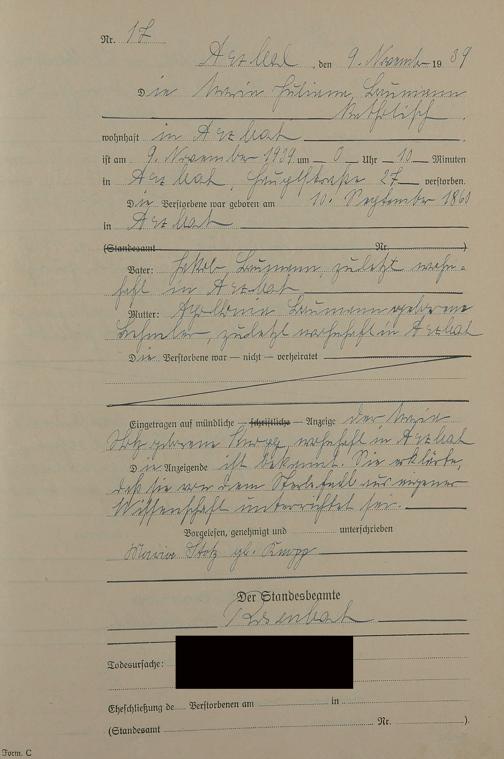 Nr. 17
Arzbach, den 9. November 1939
Die Maria Juliana Laumann
katholisch
wohnhaft in Arzbach
ist am 9. November 1939 um 0 Uhr 10 Minuten
in Arzbach, Hauptstraße 27 verstorben.
Die Verstorbene war geboren am 10. September 1860
in Arzbach
(Standesamt Nr. )
Vater: Jakob Laumann, zuletzt wohn-
haft in Arzbach
Mutter: Apollonia Laumann geborene
zuletzt wohnhaft in Arzbach
Die Verstorbene war — nicht — verheiratet
Eingetragen auf mündliche — schriftliche — Anzeige der Maria
Stotz geborene Knopp, wohnhaft in Arzbach
Die Anzeigende ist bekannt. Sie erklärte,
daß sie von dem Sterbefall aus eigener
Wissenschaft unterrichtet sei.
Vorgelesen, genehmigt und unterschrieben
Maria Stotz gb. Knopp
Der Standesbeamte
Todesursache:
Eheschließung de Verstorbenen am in
(Standesamt Nr. ).
Form. C